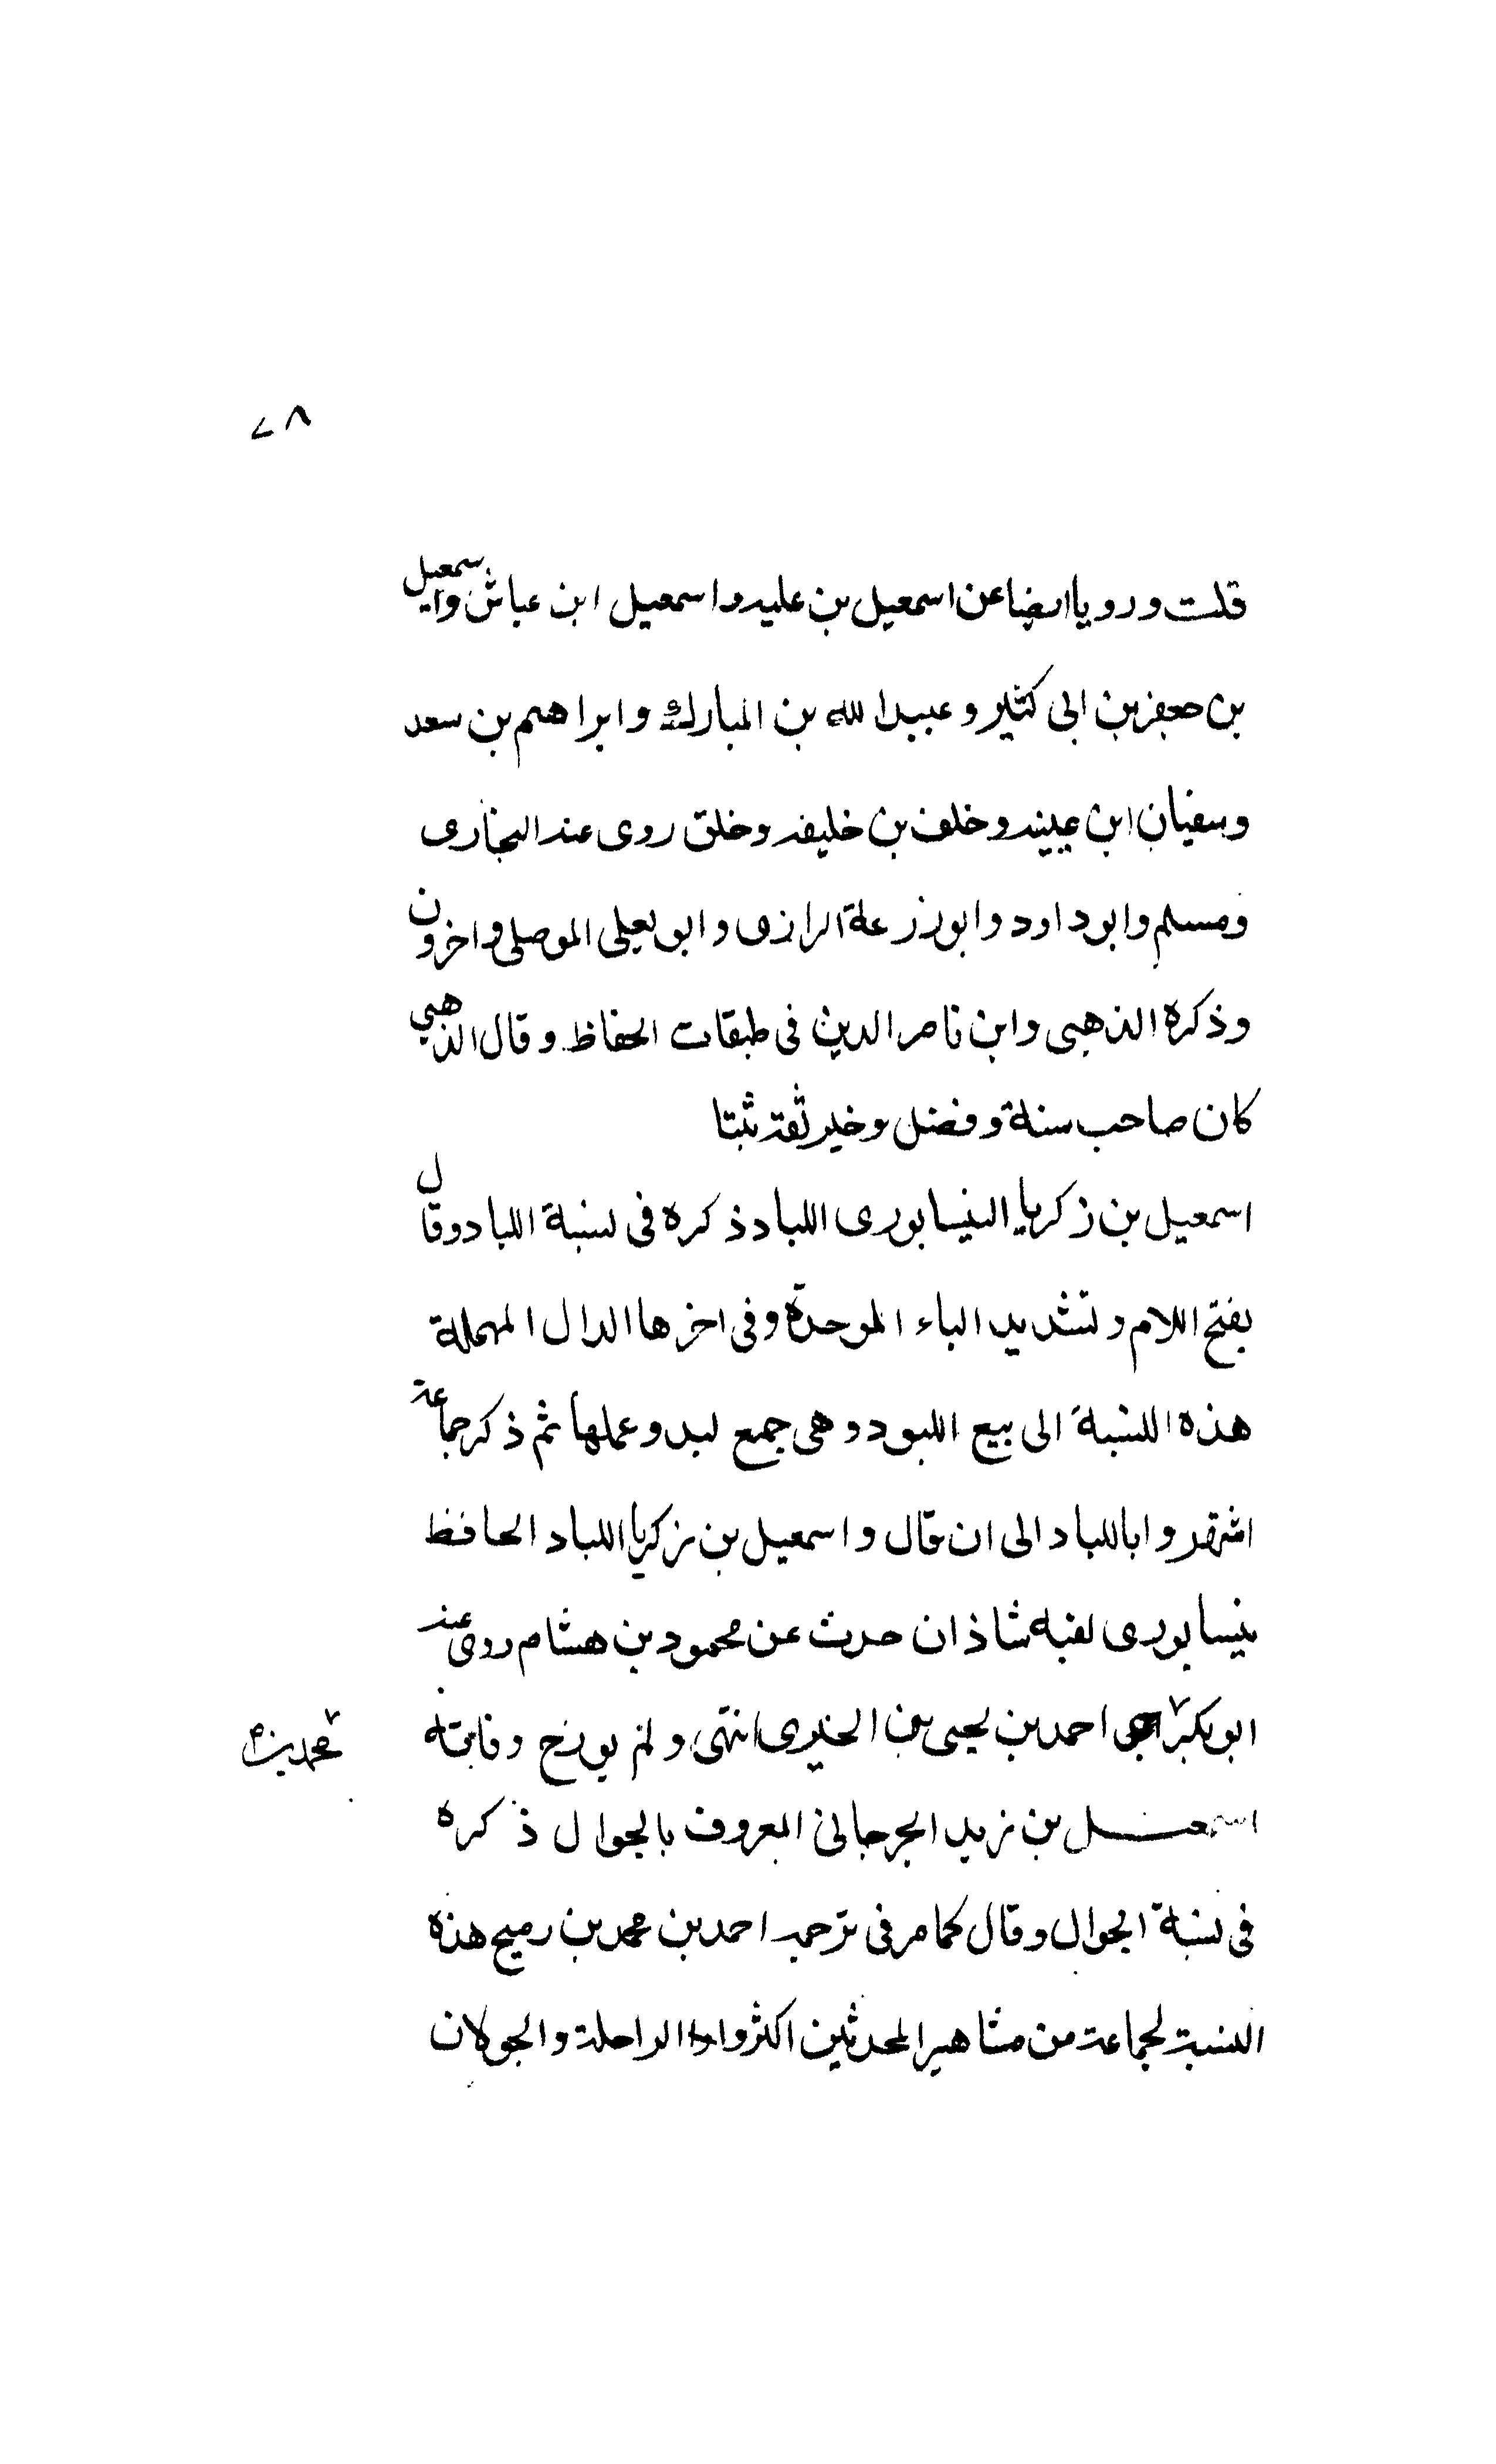 ٧٨
قلت وروياايضاعن اسمعيل بن عليه واسمعيل ابن عياش واسمعيل
بن جعفر بن ابى كثير وعبيدالله بن المبارك وابراهيم بن سعد
وسفيان ابن عيينه وخلف بن خليفه وخلق روى عنه البخارى
ومسلم وابوداود وابوزرعة الرازى وابو يعلى الموصلى واخرون
وذكره الذهبى وابن ناصر الدين فى طبقات الحفاظ وقال الذهبي
كان صاحب سنة وفضل وخير ثقة ثبتا
اسمعيل بن زكريا النيسابورى اللباد ذكره فى نسبة اللباد وقال
بفتح اللام وتشديد الباء الموحدة وفى اخرها الدال المهملة
هذه النسبة الى بيع اللبود وهى جمع لبد وعملها ثم ذكر جماعة
اشتهروا باللباد الى ان قال واسمعيل بن زكريا اللباد الحافظ
نيسابورى لقبه شاذان حدث عن محمود بن هشام روى عنه
ابو بكر احمد بن يحيى بن الحيرى انتهى ولم يورخ وفاته
محمد بن
اسمعيل بن زيد الجرجانى المعروف بالجوال ذكره
فى نسبة الجوال وقال كما مر فى ترجمة احمد بن محمد بن رميح هذه
النسبة لجماعة من مشاهير المحدثين اكثروا الراحلة والجولان